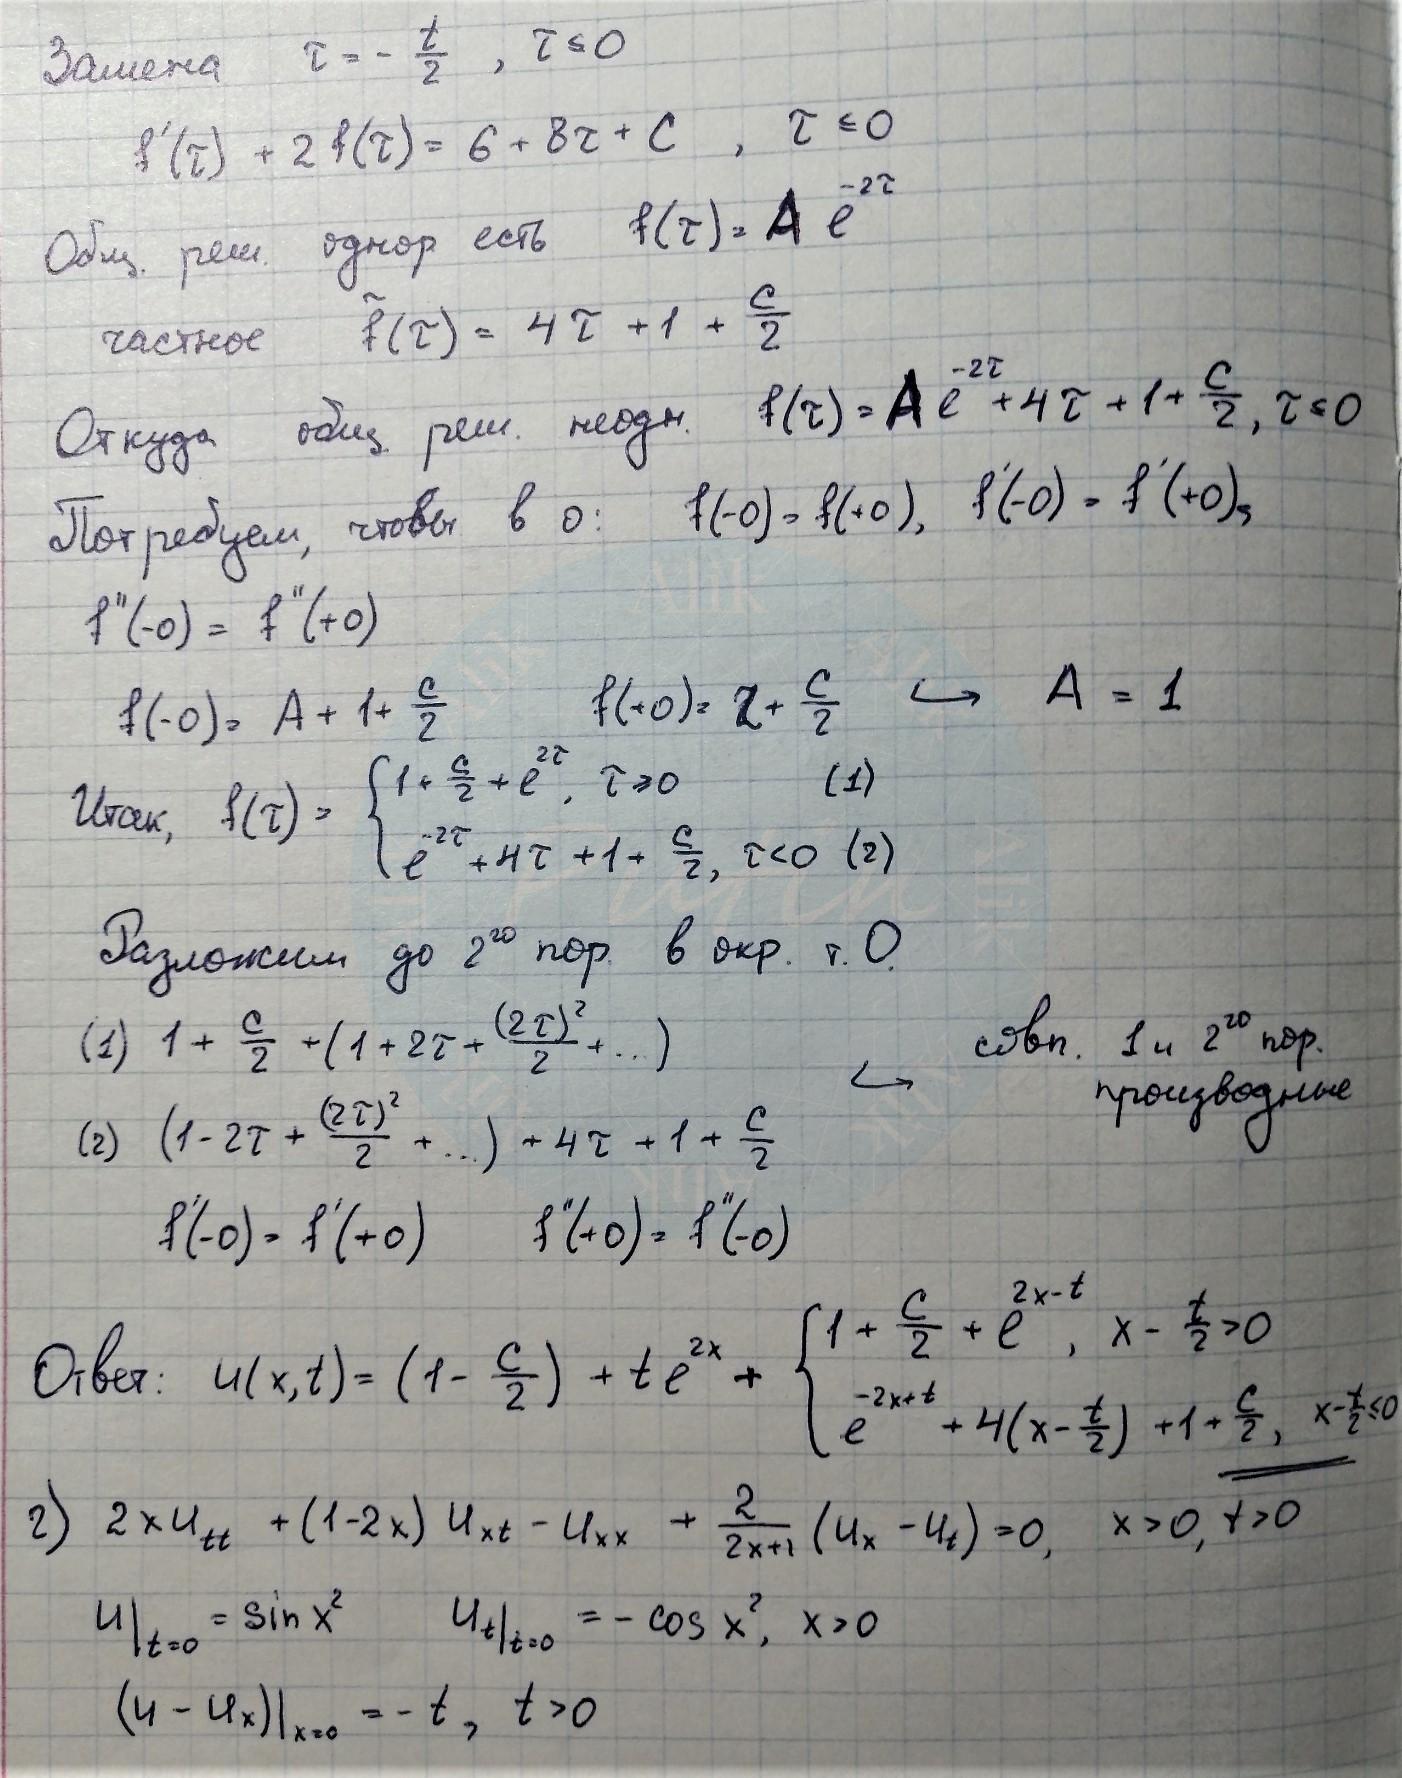 Замена τ = - t/2 , τ ≤ 0
f'(τ) + 2f(τ) = 6 + 8τ + C , τ ≤ 0
Общ. реш. однор есть f(τ) = A e^{-2τ}
частное f̃(τ) = 4τ + 1 + C/2
Откуда общ. реш. неодн. f(τ) = A e^{-2τ} + 4τ + 1 + C/2, τ ≤ 0
Потребуем, чтобы в 0: f(-0) = f(+0), f'(-0) = f'(+0),
f''(-0) = f''(+0)
f(-0) = A + 1 + C/2 f(+0) = 2 + C/2 ↪ A = 1
Итак, f(τ) = { 1 + C/2 + e^{2τ}, τ ≥ 0 (1)
e^{-2τ} + 4τ + 1 + C/2, τ < 0 (2)
Разложим до 2^{го} пор. в окр. т. 0.
(1) 1 + C/2 + (1 + 2τ + (2τ)²/2 + ...)
↪ совп. 1 и 2^{го} пор. производные
(2) (1 - 2τ + (2τ)²/2 + ...) + 4τ + 1 + C/2
f'(-0) = f'(+0) f''(+0) = f''(-0)
Ответ: u(x,t) = (1 - C/2) + t e^{2x} + { 1 + C/2 + e^{2x-t}, x - t/2 > 0
e^{-2x+t} + 4(x - t/2) + 1 + C/2, x - t/2 ≤ 0
2) 2x u_{tt} + (1-2x) u_{xt} - u_{xx} + 2/(2x+1) (u_x - u_t) = 0, x > 0, t > 0
u|_{t=0} = sin x² u_t|_{t=0} = - cos x², x > 0
(u - u_x)|_{x=0} = - t, t > 0
Alik